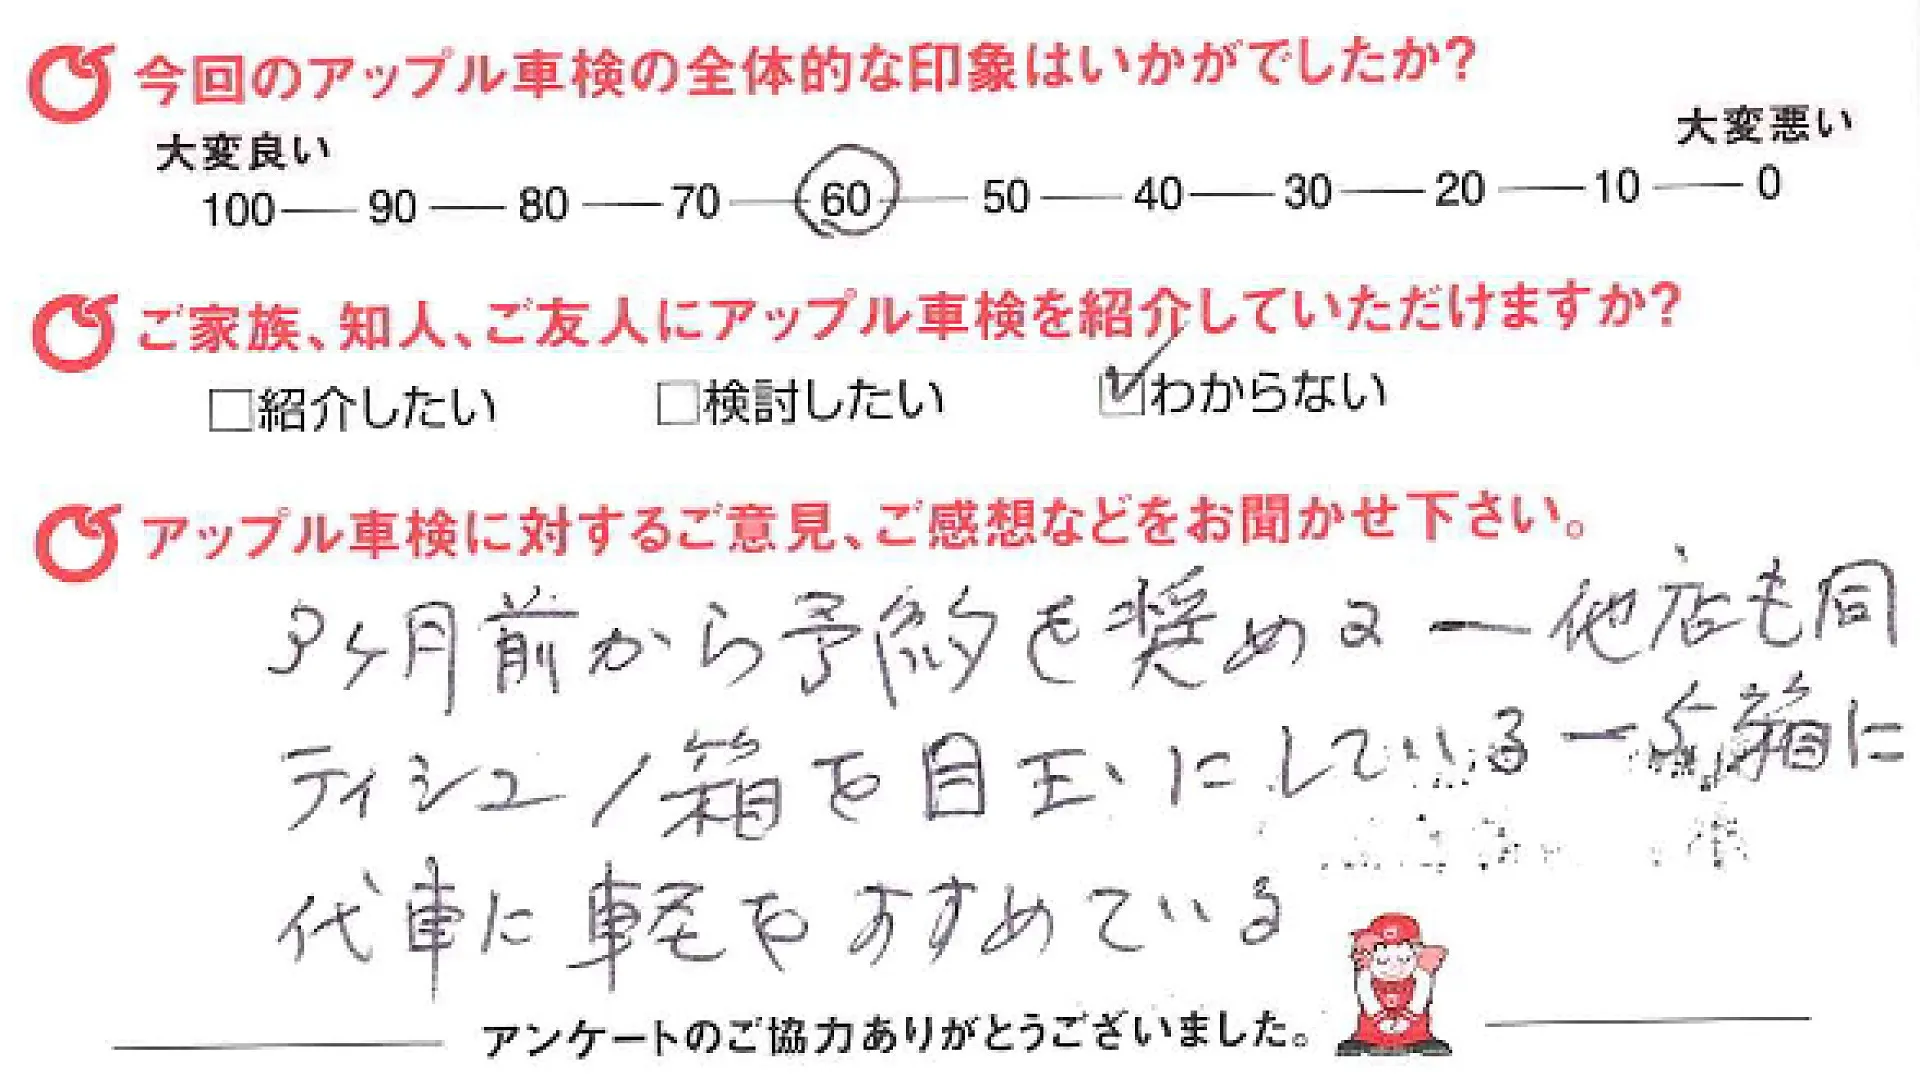 今回のアップル車検の全体的な印象はいかがでしたか?
大変良い 大変悪い
100 90 80 70 60 50 40 30 20 10 0
ご家族、知人、ご友人にアップル車検を紹介していただけますか?
□紹介したい □検討したい ☑わからない
アップル車検に対するご意見、ご感想などをお聞かせ下さい。
3ヶ月前から予約を奨める ー 他店も同
ティシュ1箱を目玉にしている ー 5箱に
代車に軽をすすめている
アンケートのご協力ありがとうございました。